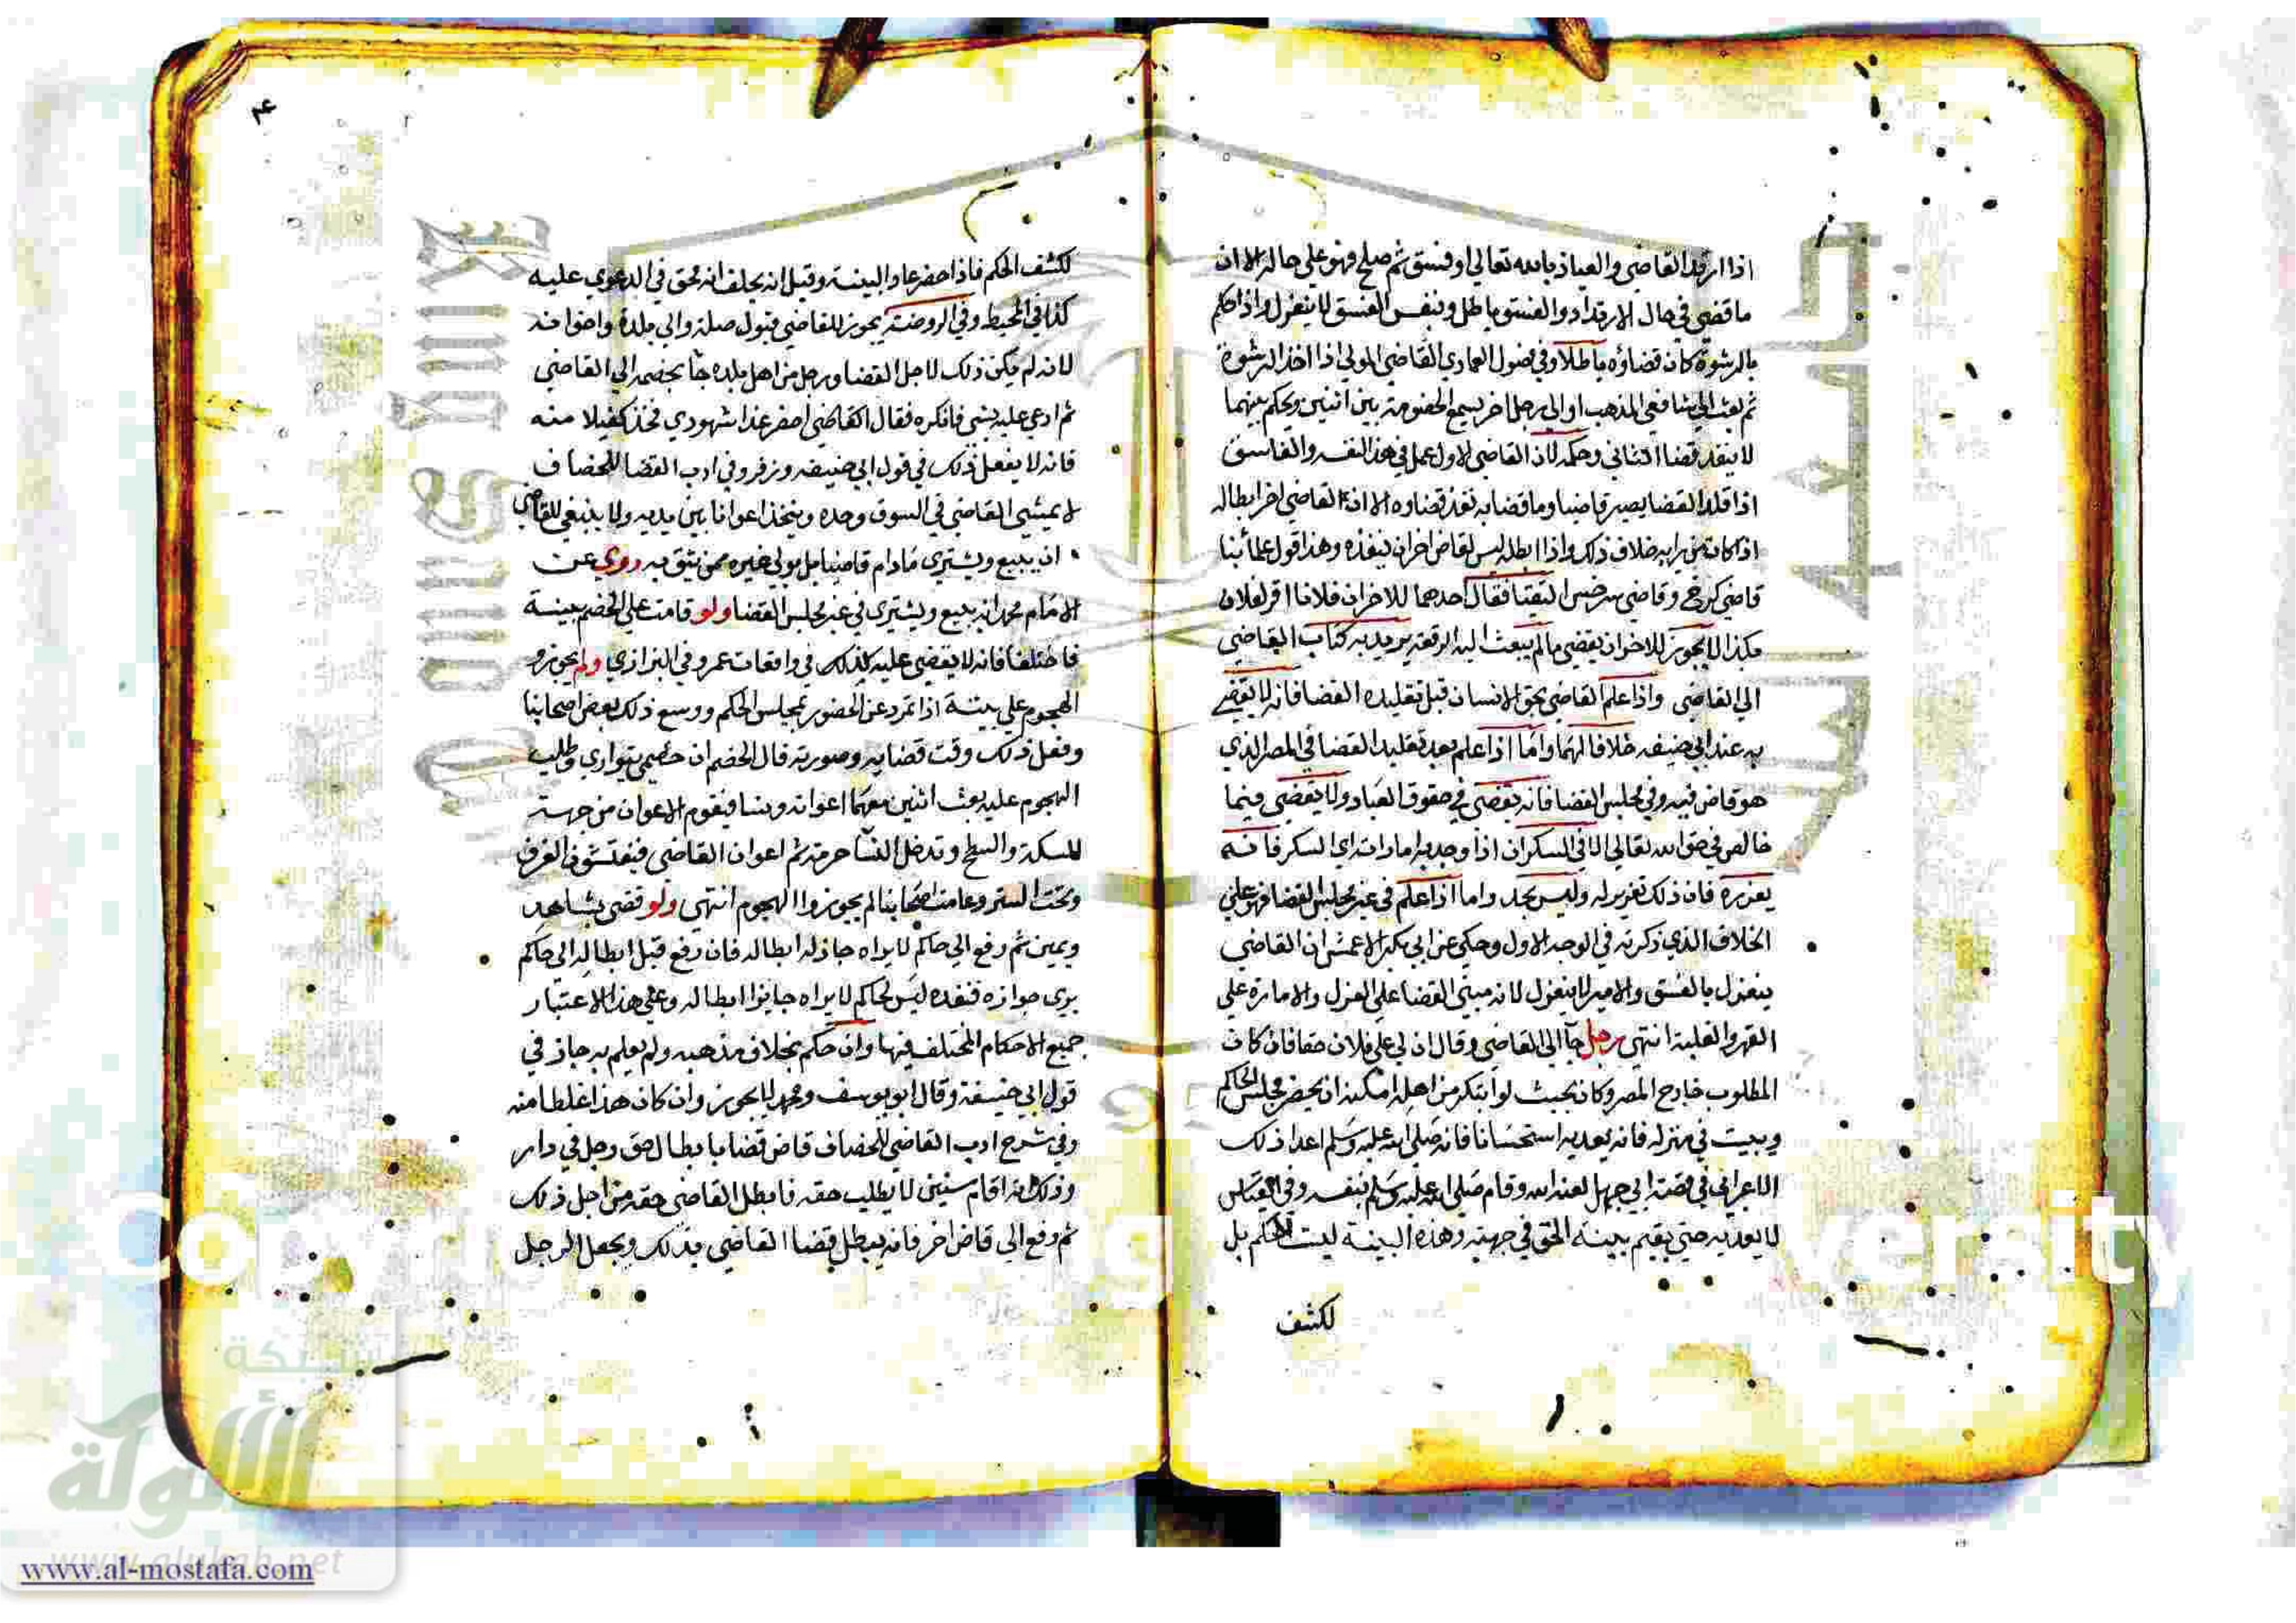 اذا ارتد القاضي والعياذ بالله تعالي او فسق ثم صلح فهو علي حاله الا ان
ما قضي في حال الارتداد والفسق باطل وبنفس الفسق لا ينعزل واذا حكم
بالرشوة كان قضاؤه باطلا وفي فصول العمادي القاضي المولي اذا اخذ الرشوة
ثم بعث الي شافعي المذهب او الي رجل اخر يسمع الخصومة بين اثنين ويحكم بينهما
لا ينفذ قضا الثاني وحكمه لان القاضي الاول عمل في هذا لنفسه والفاسق
اذا قلد القضا يصير قاضيا وما قضا به نفذ قضاوه الا ان القاضي اخر ابطاله
اذا كان من رايه خلاف ذلك واذا ابطله ليس لقاض اخر ان ينفذه وهذا قول علمائنا
قاضي كرخ وقاضي سرخس التقيا فقال احدهما للاخر ان فلانا اقر لفلان
بكذا لا يجوز للاخر ان يقضي ما لم يبعث اليه الرقعة يريد به كتاب القاضي
الي القاضي واذا علم القاضي بحق الانسان قبل تقليده القضا فانه لا يقضي
به عند ابي حنيفه خلافا لهما واما اذا علم بعد تقليد القضا في المصر الذي
هو قاض فيه وفي مجلس القضا فانه يقضي في حقوق العباد ولا يقضي فيما
خالص في حق الله تعالي الا في السكران اذا وجد به امارات اي السكر فانه
يعزره فان ذلك تعزير له وليس بحد واما اذا علم في غير مجلس القضا فهو علي
الخلاف الذي ذكرته في الوجه الاول وحكي عن ابي بكر الاعمش ان القاضي
ينعزل بالفسق والامير لا ينعزل لانه مبني القضا علي العزل والامارة علي
القهر والغلبة انتهي رجل جآ الي القاضي وقال ان لي علي فلان حقا فان كان
المطلوب خارج المصر وكان بحيث لو ابتكر من اهله امكنه ان يحضر مجلس الحاكم
ويبيت في منزله فانه يعديه استحسانا فانه صلي الله عليه وسلم اعدا ذلك
الاعرابي في قصة ابي جهل لعنه الله وقام صلي الله عليه وسلم بنفسه وفي القياس
لا يعديه حتي يقيم بينة الحق في جهته وهذه البينة ليست للحكم بل
لكشف
لكشف الحكم فاذا احضر عاد البينة وقيل انه يحلف انه محق في الدعوي عليه
كذا في المحيط وفي الروضة يجوز للقاضي قبول صلة والي بلدة واخوانه
لانه لم يكن ذلك لاجل القضا ورجل من اهل بلده جآ بخصمه الي القاضي
ثم ادعي عليه بشي فانكره فقال القاضي احضر غدا شهودي فخذ كفيلا منه
فانه لا يفعل ذلك في قول ابي حنيفه وزفر وفي ادب القضا للخصاف
لا يمشي القاضي في السوق وحده ويتخذ اعوانا بين يديه ولا ينبغي للقاضي
ان يبيع ويشتري مادام قاضيا بل يولي غيره ممن يثق به روي عن
الامام محمد انه يبيع ويشتري في غير مجلس القضا ولو قامت علي الخصم بينة
فاختلفا فانه لا يقضي عليه كذلك في واقعات عمر وفي البزازي ولم يجوزو
الهجوم علي بيته اذا تمرد عن الحضور لمجلس الحكم ووسع ذلك بعض اصحابنا
وفعل ذلك وقت قضايه وصورته قال الخصم ان خصمي يتواري وطلب
الهجوم عليه بعث اثنين معهما اعوانه ونسا فيقوم الاعوان من جهة
للسكة والسطح وتدخل النسآ حرمته ثم اعوان القاضي فيفتشو في الغرف
وتحت السترر وعامت اصحابنا لم يجوزوا الهجوم انتهي ولو قضي بشاهد
ويمين ثم رفع الي حاكم لا يراه جاز له ابطاله فان رفع قبل ابطاله الي حاكم
يري جوازه فنفذه ليس لحاكم لا يراه جايزا ابطاله وعلي هذا الاعتبار
جميع الاحكام المختلف فيها وان حكم بخلاف مذهبه ولم يعلم به جاز في
قول ابي حنيفة وقال ابو يوسف ومحمد لا يجوز وان كان هذا غلطا منه
وفي شرح ادب القاضي للخصاف قاض قضا بابطال حق رجل في دار
وذلك انه اقام سنين لا يطلب حقه فابطل القاضي حقه من اجل ذلك
ثم رفع الي قاض اخر فانه يبطل قضا القاضي بذلك ويجعل الرجل
شبكة
الألوكة
www.alukah.net
www.al-mostafa.com